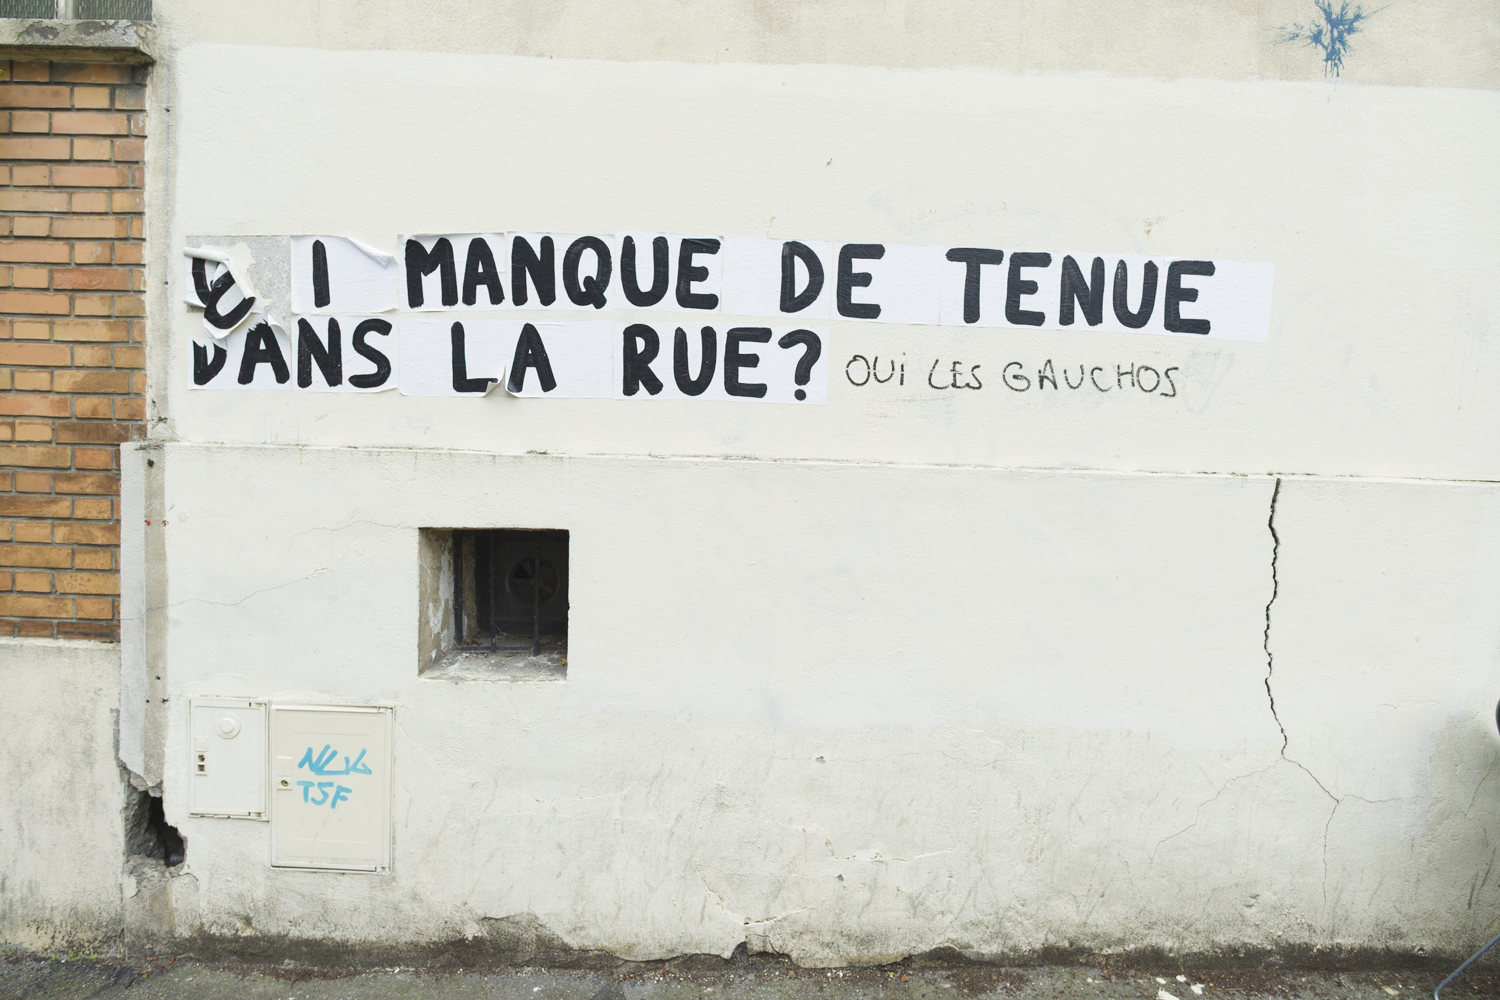 MANQUE DE TENUE
DANS LA RUE?
OUI LES GAUCHOS
TSF